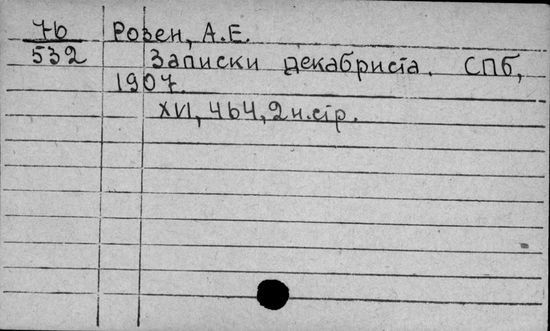 7б Розен, А.Е.
532 Записки декабриста. СПб,
1907.
XVI, 464, 2 н.стр.